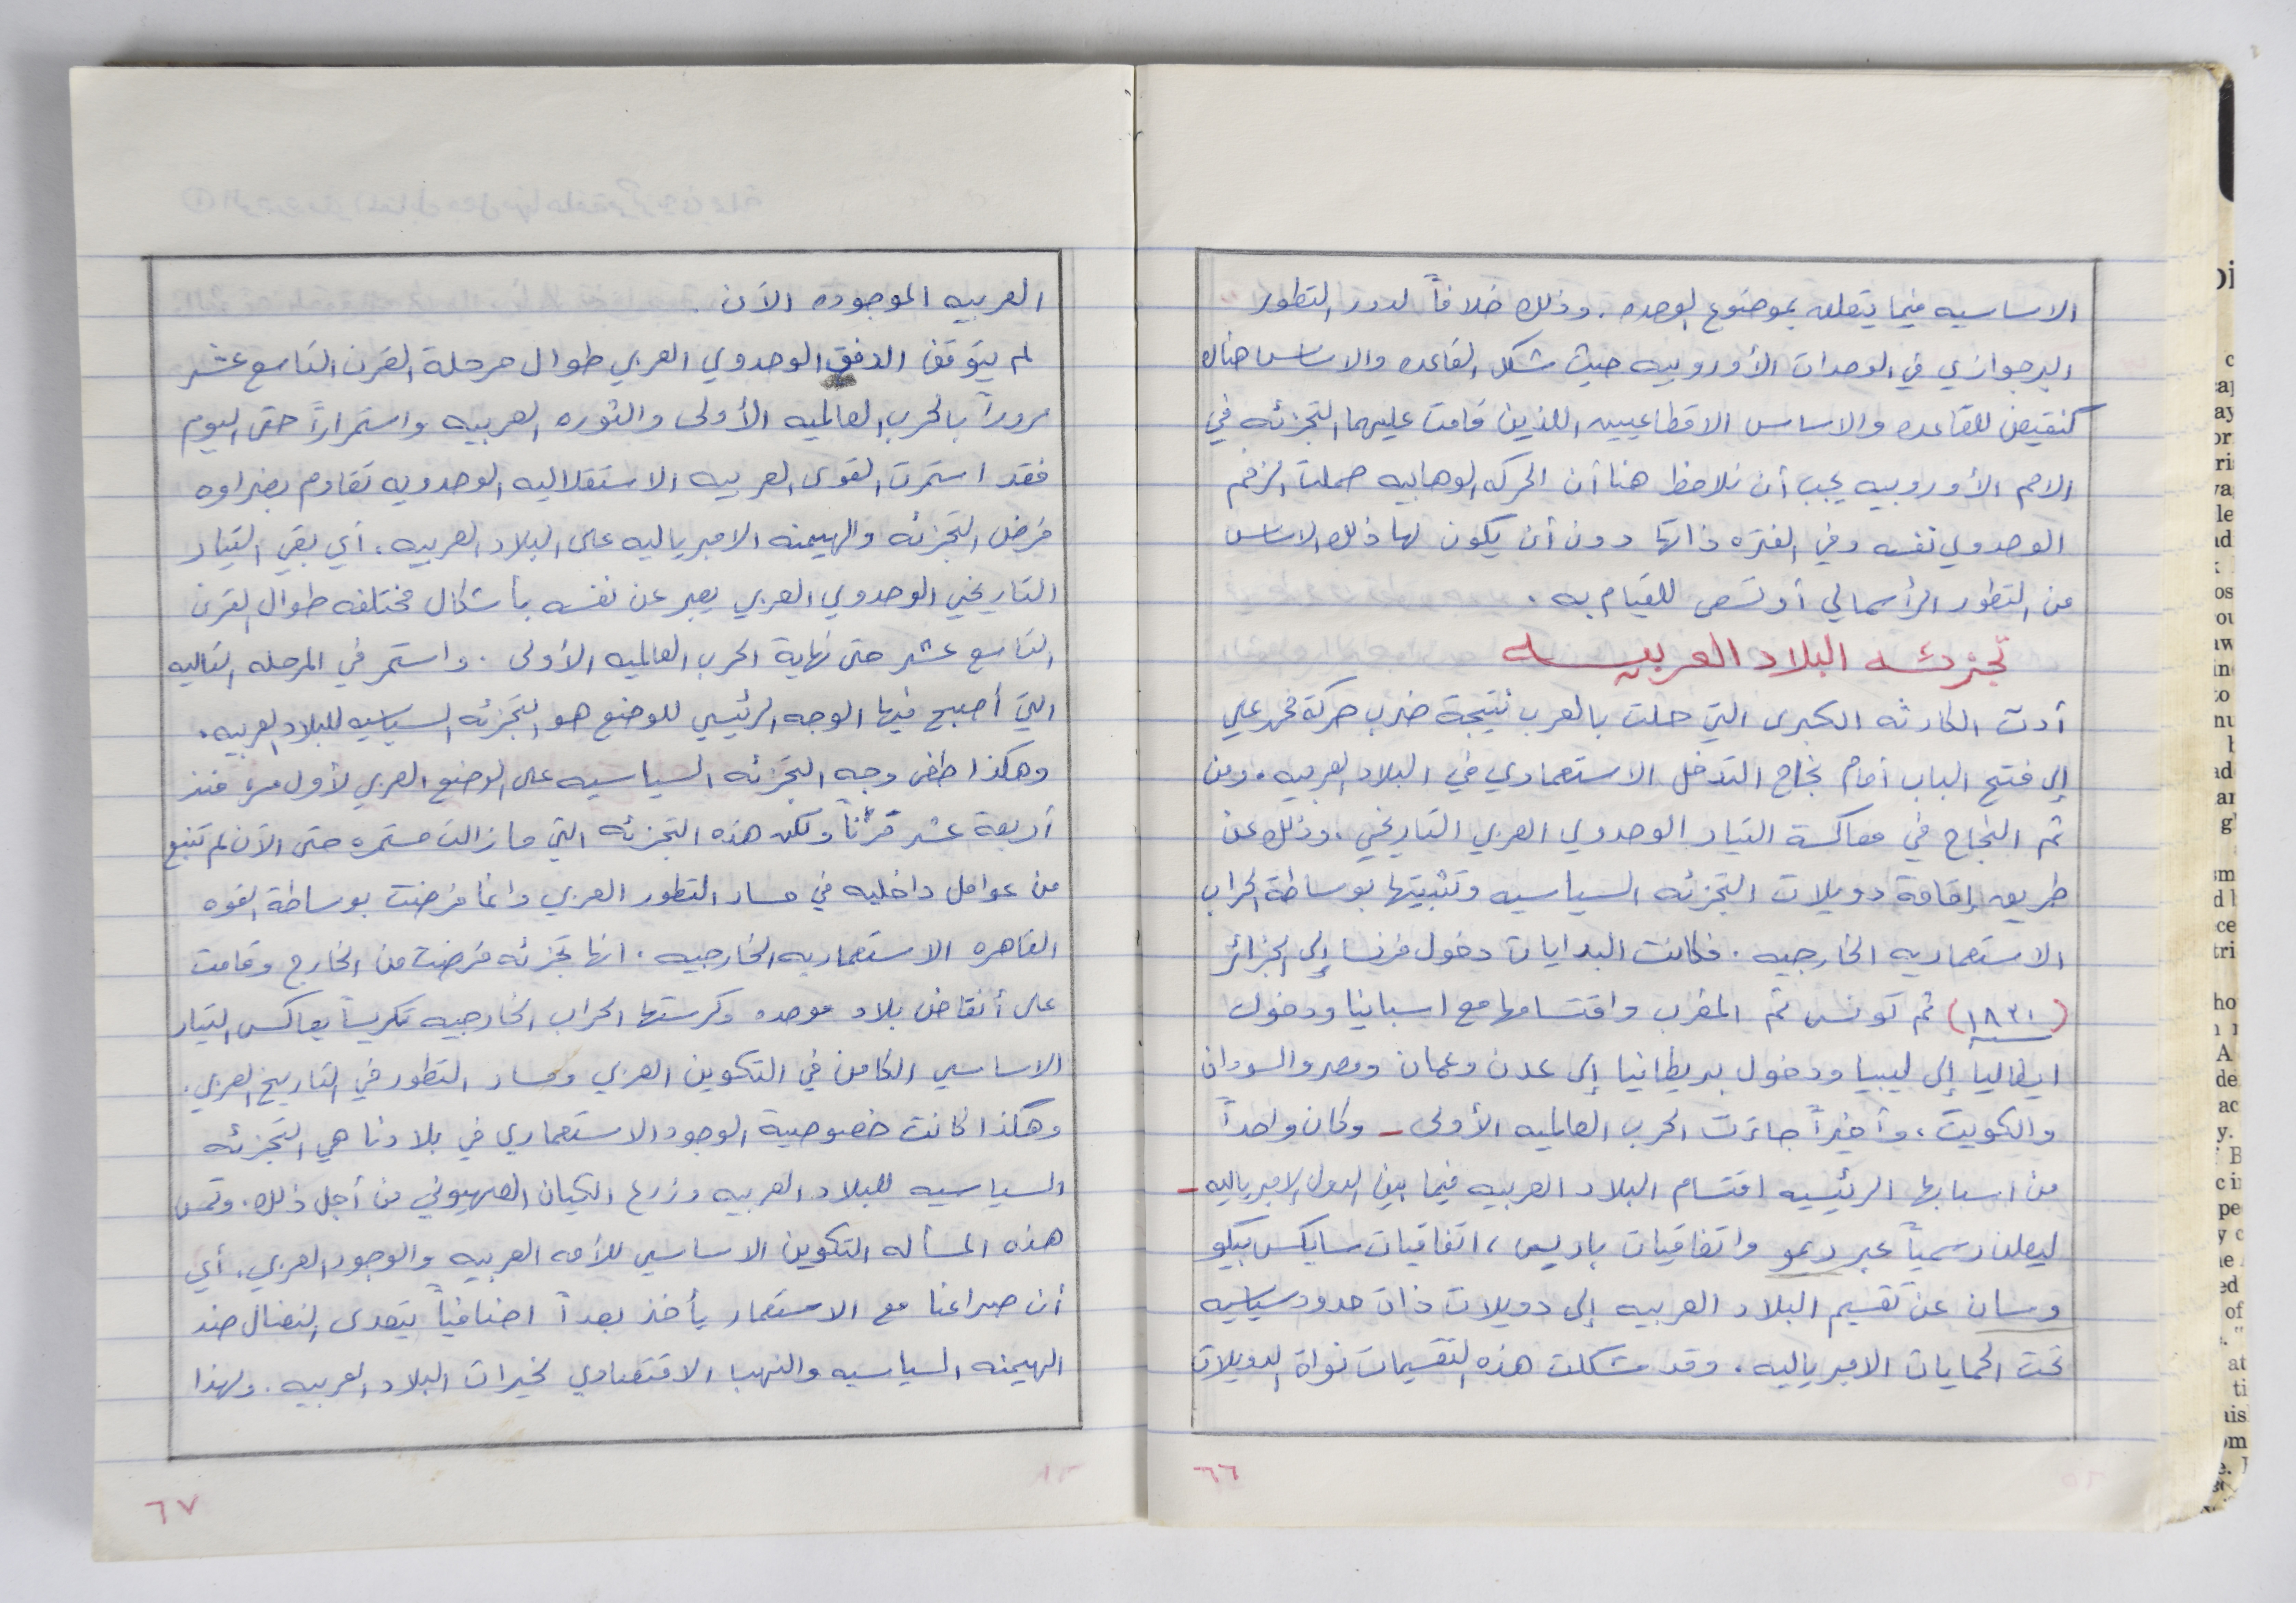 الاساسيه فيما يتعلق بموضوع الوحده . وذلك خلافاً لدور التطور
البرجوازي في الوحدات الأوروبيه حيث شكل القاعده والاساس هناك
كنقيض للقاعده والاساس الاقطاعيين اللذين قامت عليهما التجزئه في
الامم الأوروبيه يجب أن نلاحظ هنا أن الحركه الوهابيه حملت الزخم
الوحدوي نفسه وفي الفتره ذاتها دون أن يكون لها ذلك الاساس
من التطور الرأسمالي أو تسعى للقيام به .
تجزئه البلاد العربيه
أدت الكارثه الكبرى التي حلت بالعرب نتيجة ضرب حركة محمد علي
إلى فتح الباب أمام نجاح التدخل الاستعماري في البلاد العربيه . ومن
ثم النجاح في معاكسة التيار الوحدوي العربي التاريخي . وذلك عن
طريق إقامة دويلات التجزئه السياسيه وتثبيتها بوساطة الحراب
الاستعماريه الخارجيه . فكانت البدايات دخول فرنسا إلى الجزائر
(١٨٣٠) ثم تونس ثم المغرب واقتسامها مع اسبانيا ودخول
ايطاليا إلى ليبيا ودخول بريطانيا إلى عدن وعمان ومصر والسودان
والكويت ، وأخيراً جاءت الحرب العالميه الأولى - وكان واحداً
من اسبابها الرئيسيه اقتسام البلاد العربيه فيما بين الدول الامبرياليه -
ليعلن رسمياً عبر ريمو واتفاقيات باريس ، اتفاقيات سايكس بيكو
وسان عن تقسيم البلاد العربيه إلى دويلات ذات حدود سياسيه
تحت الحمايات الامبرياليه . وقد شكلت هذه التقسيمات نواة الدويلات
٦٦
العربيه الموجوده الآن .
لم يتوقف الدفق الوحدوي العربي طوال مرحلة القرن التاسع عشر
مروراً بالحرب العالميه الأولى والثوره العربيه واستمراراً حتى اليوم
فقد استمرت القوى العربيه الاستقلاليه الوحدويه تقاوم بضراوه
فرض التجزئه والهيمنه الامبرياليه على البلاد العربيه . أي بقي التيار
التاريخي الوحدوي العربي يعبر عن نفسه بأشكال مختلفه طوال القرن
التاسع عشر حتى نهاية الحرب العالميه الأولى . واستمر في المرحله التاليه
التي أصبح فيها الوجه الرئيسي للوضع هو التجزئه السياسيه للبلاد العربيه .
وهكذا طغى وجه التجزئه السياسيه على الوضع العربي لأول مره منذ
أربعة عشر قرناً ولكن هذه التجزئه التي ما زالت مستمره حتى الآن لم تنبع
من عوامل داخليه في مسار التطور العربي وانما فرضت بوساطة القوه
القاهره الاستعماريه الخارجيه . انها تجزئه فرضت من الخارج وقامت
على أنقاض بلاد موحده وكرستها الحراب الخارجيه تكريساً يعاكس التيار
الاساسي الكامن في التكوين العربي ومسار التطور في التاريخ العربي .
وهكذا كانت خصوصية الوجود الاستعماري في بلادنا هي التجزئه
السياسيه للبلاد العربيه وزرع الكيان الصهيوني من أجل ذلك . وتمس
هذه المسأله التكوين الاساسي للأمه العربيه والوجود العربي . أي
أن صراعنا مع الاستعمار يأخذ بعداً اضافياً يتعدى النضال ضد
الهيمنه السياسيه والنهب الاقتصادي لخيرات البلاد العربيه . ولهذا
٦٧